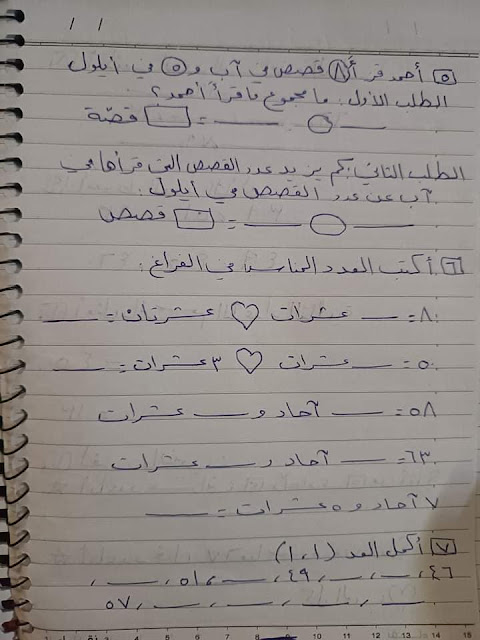 ٥ أحمد قرأ ٨ قصص في آب و ٥ في أيلول
الطلب الأول: ما مجموع ما قرأ أحمد؟
___ ○ ___ = □ قصّة
الطلب الثاني: كم يزيد عدد القصص التي قرأها في
آب عن عدد القصص في أيلول:
___ ○ ___ = □ قصص
٦ أكتب العدد المناسب في الفراغ:
٨٠ = ___ عشرات ♡ عشرتان = ___
٥٠ = ___ عشرات ♡ ٣ عشرات = ___
٥٨ = ___ آحاد و ___ عشرات
٦٣ = ___ آحاد و ___ عشرات
٧ آحاد و ٥ عشرات = ___
٧ أكمل العد (١،١)
٤٦، ___، ___، ٤٩، ___، ٥١، ___، ___،
___، ___، ___، ٥٧